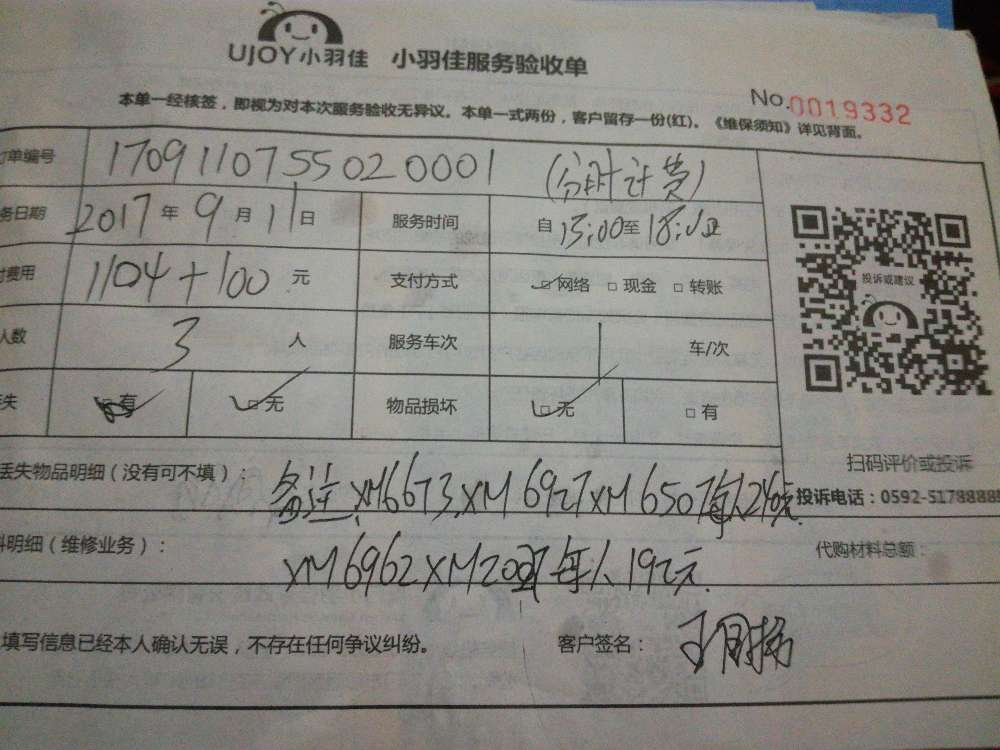 UJOY小羽佳 小羽佳服务验收单
No.0019332
本单一经核签，即视为对本次服务验收无异议。本单一式两份，客户留存一份(红)。《维保须知》详见背面。
单编号 170911075502 0001 (分时计费)
务日期 2017年9月11日 服务时间 自13:00至18:00
费用 1104+100元 支付方式 □网络 □现金 □转账
人数 3人 服务车次 1 车/次
失 □有 □无 物品损坏 □无 □有
投诉或建议
扫码评价或投诉
投诉电话：0592-5178888
丢失物品明细（没有可不填）： 备注 XM6673.XM6927XM6507每人240元
明细（维修业务）： XM6962 XM2007每人192元 代购材料总额：
填写信息已经本人确认无误，不存在任何争议纠纷。 客户签名：